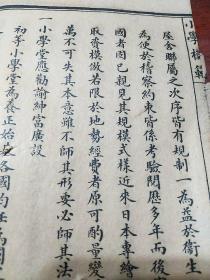 小學
屋舍聯屬之次序皆有規制爲益於衛生
為便於稽察約束皆係考驗閱歷多年而後
國者固已親見其規模式樣近來日本專繪
取資模倣若限於地勢經費者原可酌量變
萬不可失其本意雖不師其形要必師其法
一小學堂應勸諭紳富廣設
初等小學堂為養正始